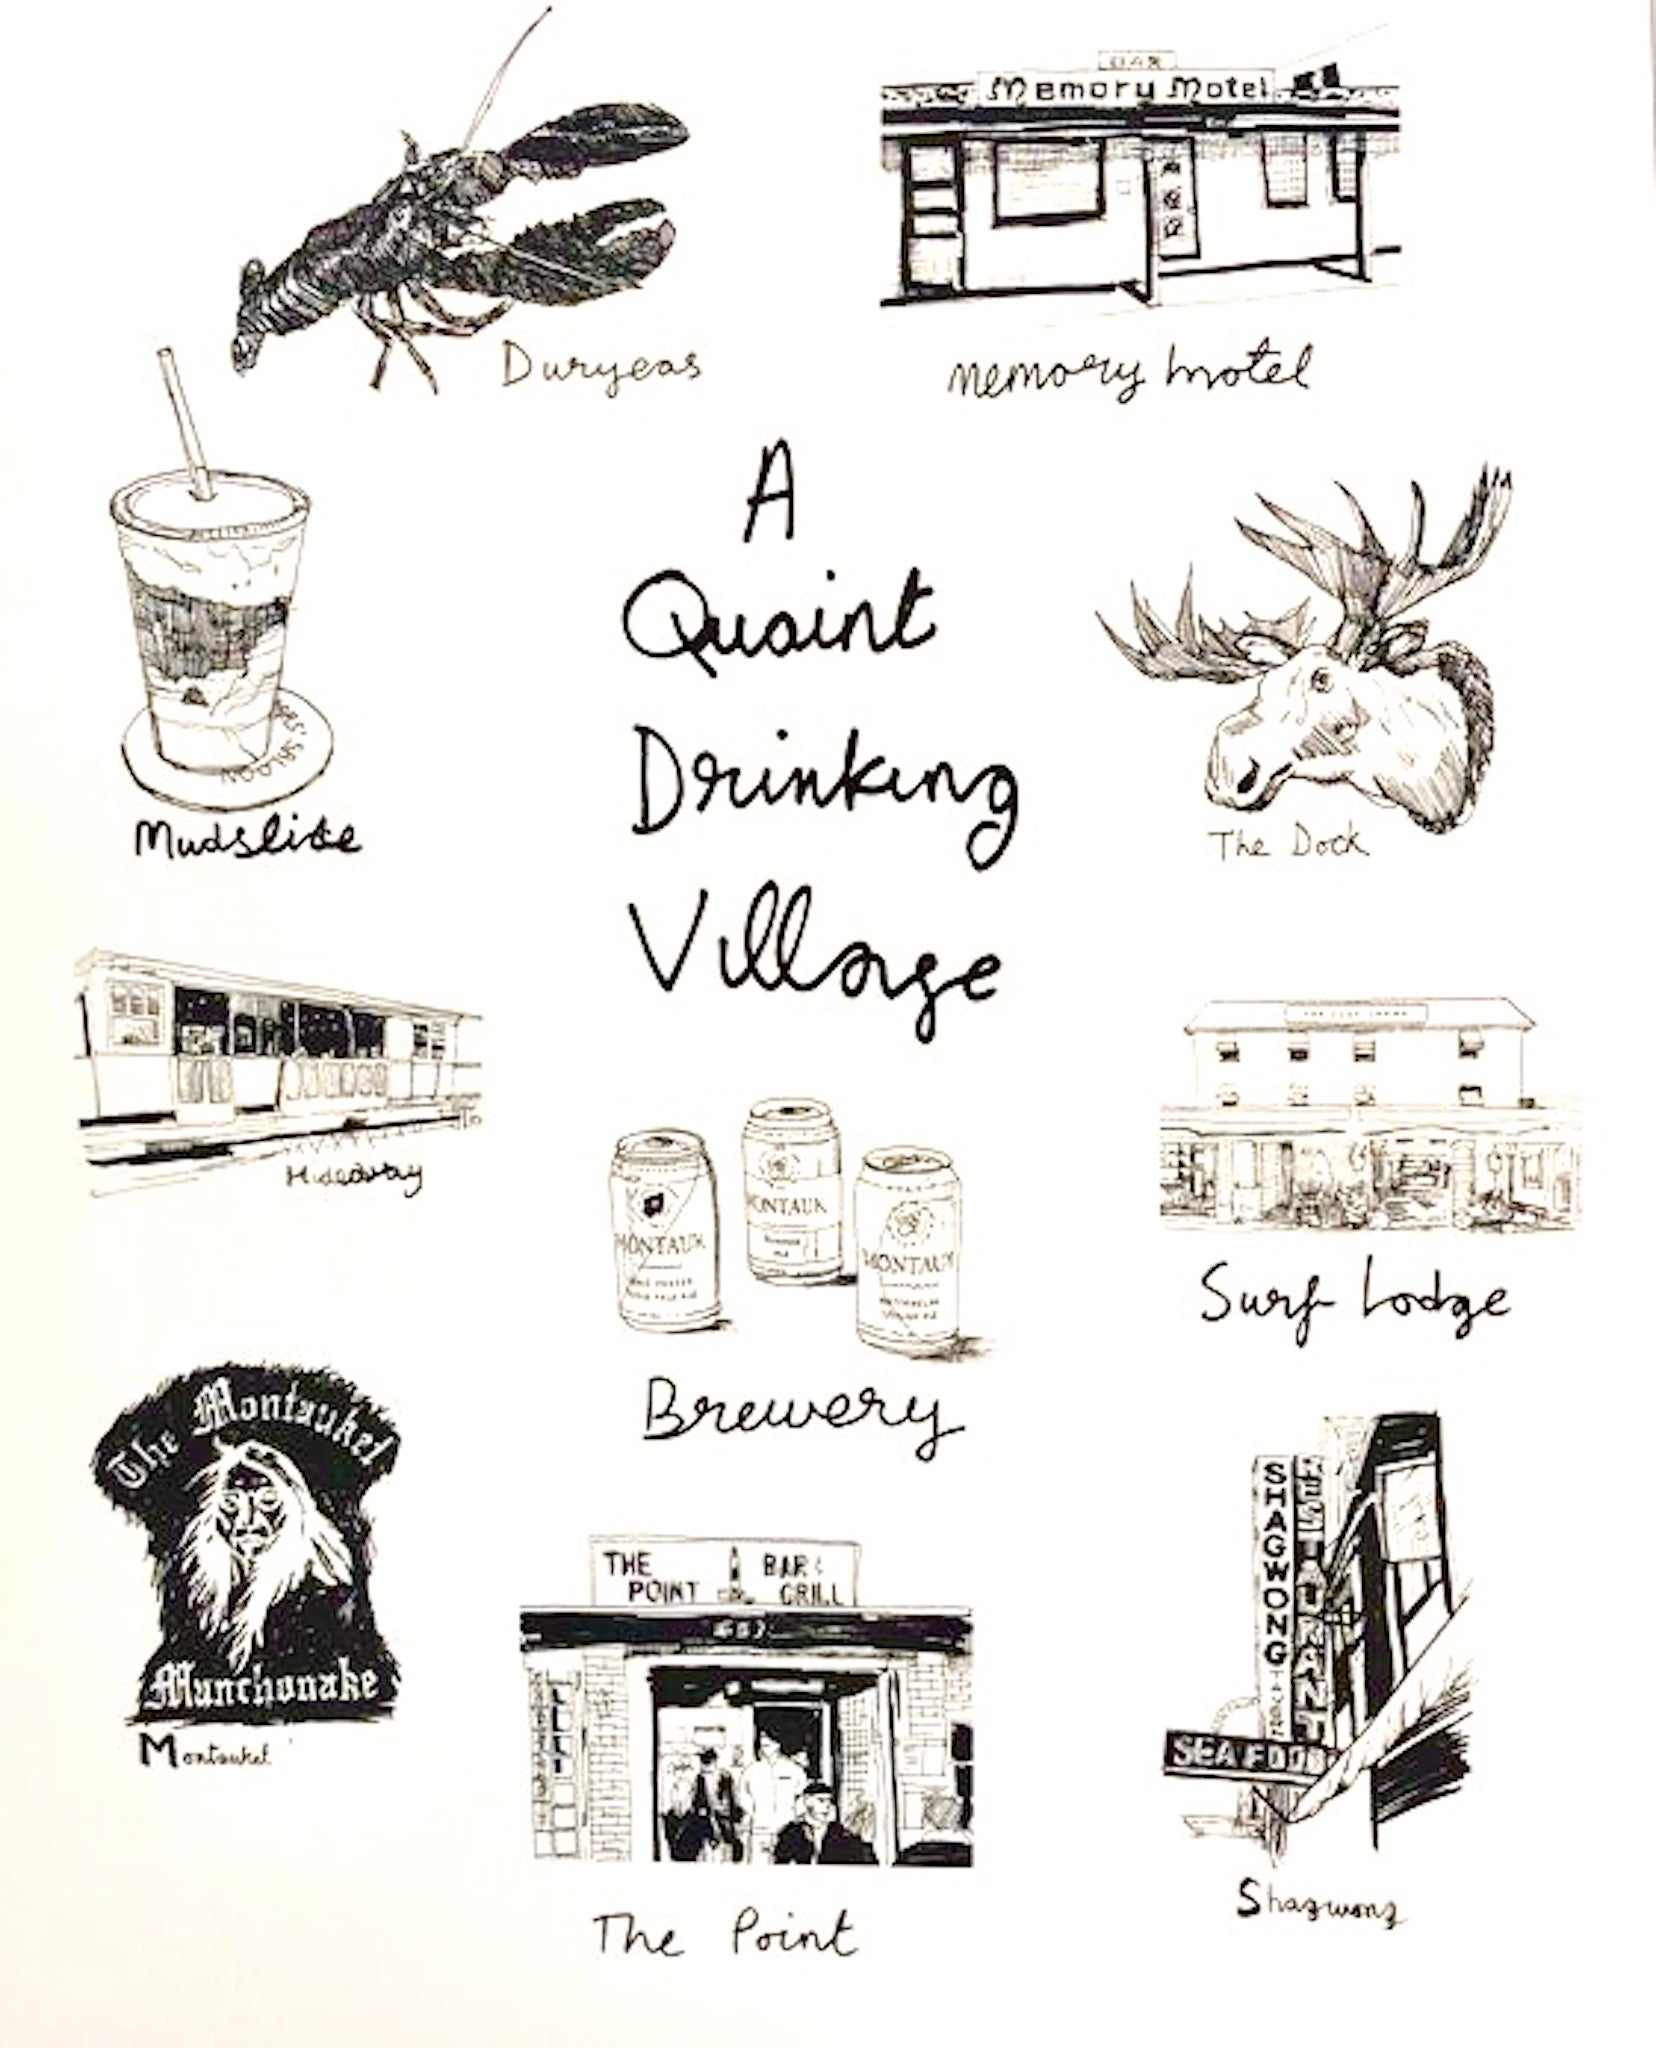 BAR
Memory Motel
Duryeas
Memory Motel
A
Quaint
Drinking
Village
SALOON
Mudslide
The Dock
Hideaway
MONTAUK
MONTAUK
MONTAUK
Surf Lodge
Brewery
The Montaukel
Manchonake
Montaukel
THE BAR &
POINT GRILL
The Point
SHAGWONG
RESTAURANT
TAVERN
SEAFOOD
Shagwong